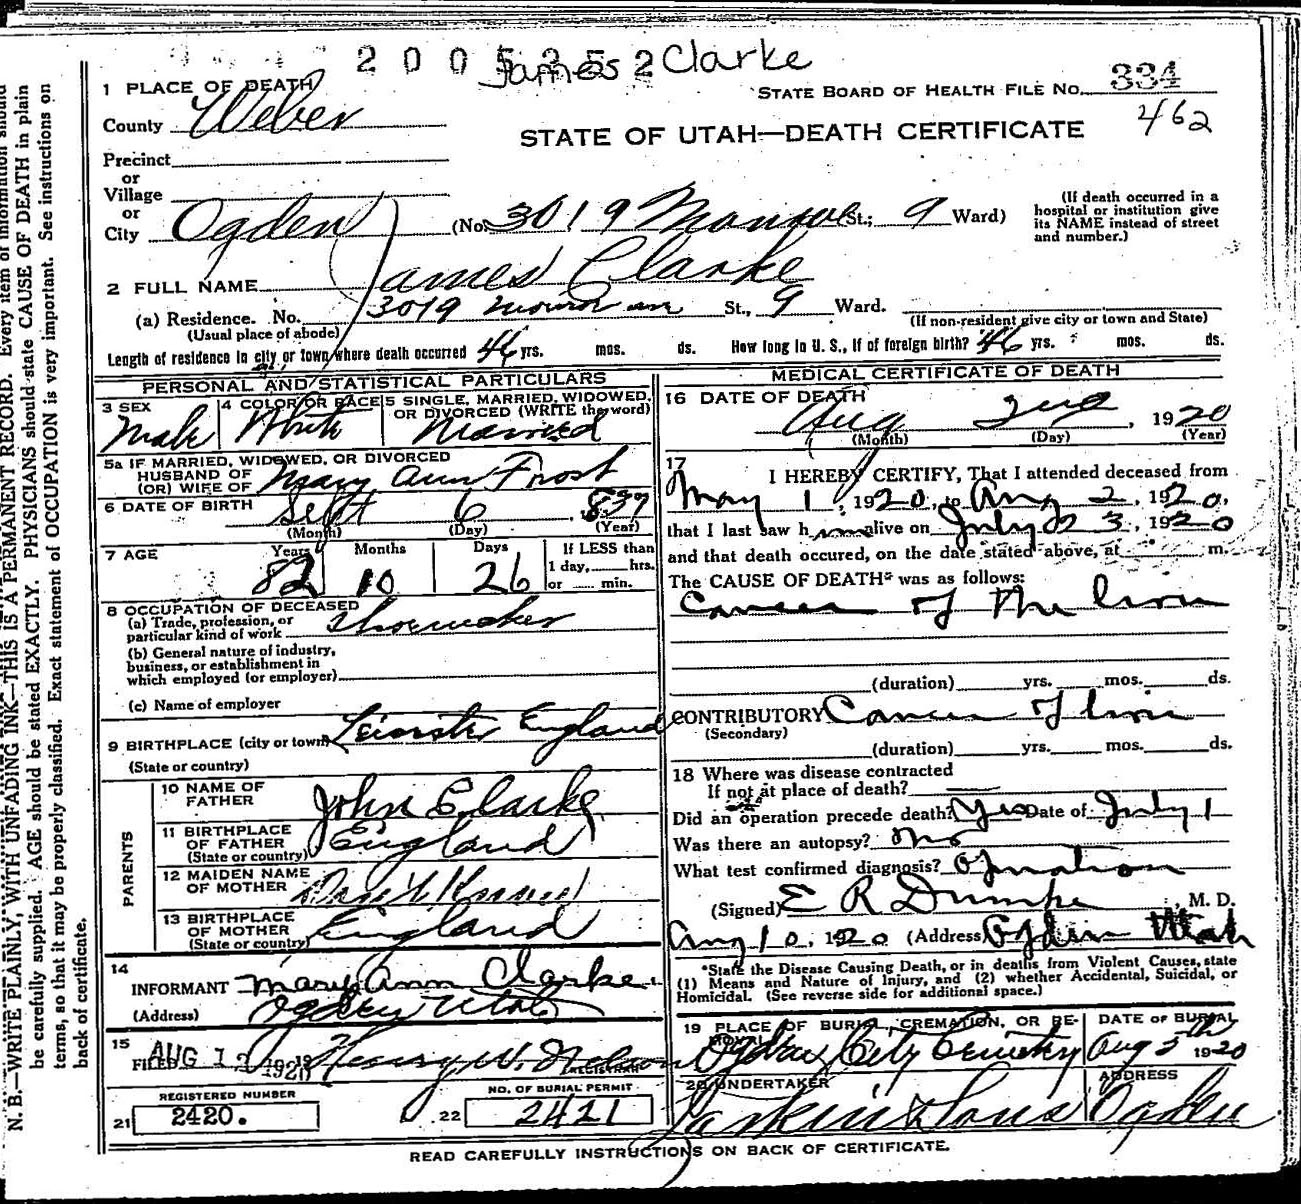 2005252
James Clarke
1 PLACE OF DEATH
STATE BOARD OF HEALTH FILE No. 334
County Weber
462
STATE OF UTAH—DEATH CERTIFICATE
Precinct
or
Village
or
City Ogden (No. 3019 Monroe St.; 9 Ward)
(If death occurred in a hospital or institution give its NAME instead of street and number.)
2 FULL NAME James Clarke
(a) Residence. No. 3019 Monroe ave St., 9 Ward.
(Usual place of abode)
(If non-resident give city or town and State)
Length of residence in city or town where death occurred 46 yrs. mos. ds. How long in U. S., if of foreign birth? 46 yrs. mos. ds.
PERSONAL AND STATISTICAL PARTICULARS
3 SEX
Male
4 COLOR OR RACE
White
5 SINGLE, MARRIED, WIDOWED, OR DIVORCED (WRITE the word)
Married
5a IF MARRIED, WIDOWED, OR DIVORCED
HUSBAND OF
(OR) WIFE OF Mary Ann Frost
6 DATE OF BIRTH Sept 6, 1837
(Month) (Day) (Year)
7 AGE
Years Months Days
82 10 26
If LESS than
1 day, hrs.
or min.
8 OCCUPATION OF DECEASED
(a) Trade, profession, or
particular kind of work Shoemaker
(b) General nature of industry,
business, or establishment in
which employed (or employer)
(c) Name of employer
9 BIRTHPLACE (city or town) Leicester England
(State or country)
PARENTS
10 NAME OF
FATHER John Clarke
11 BIRTHPLACE
OF FATHER England
(State or country)
12 MAIDEN NAME
OF MOTHER
13 BIRTHPLACE
OF MOTHER England
(State or country)
14
INFORMANT Mary Ann Clarke
(Address) Ogden Utah
15
FILED AUG 1 1920 Henry W. Nelson
REGISTRAR
REGISTERED NUMBER
21 2420.
NO. OF BURIAL PERMIT
22 2421
MEDICAL CERTIFICATE OF DEATH
16 DATE OF DEATH
Aug 2nd, 1920
(Month) (Day) (Year)
17
I HEREBY CERTIFY, That I attended deceased from
May 1, 1920, to Aug 2, 1920,
that I last saw him alive on July 23, 1920
and that death occured, on the date stated above, at m.
The CAUSE OF DEATH* was as follows:
Cancer of the liver
(duration) yrs. mos. ds.
CONTRIBUTORY Cancer of liver
(Secondary)
(duration) yrs. mos. ds.
18 Where was disease contracted
If not at place of death?
Did an operation precede death? Yes Date of July 1
Was there an autopsy? No
What test confirmed diagnosis? Operation
(Signed) E R Dumke, M. D.
Aug 10, 1920 (Address) Ogden Utah
*State the Disease Causing Death, or in deaths from Violent Causes, state
(1) Means and Nature of Injury, and (2) whether Accidental, Suicidal, or
Homicidal. (See reverse side for additional space.)
19 PLACE OF BURIAL, CREMATION, OR RE-
MOVAL
Ogden City Cemetery
DATE OF BURIAL
Aug 5th 1920
20 UNDERTAKER
Larkin & Sons
ADDRESS
Ogden
READ CAREFULLY INSTRUCTIONS ON BACK OF CERTIFICATE.
N. B.—WRITE PLAINLY, WITH UNFADING INK—THIS IS A PERMANENT RECORD. Every item of information should
be carefully supplied. AGE should be stated EXACTLY. PHYSICIANS should state CAUSE OF DEATH in plain
terms, so that it may be properly classified. Exact statement of OCCUPATION is very important. See instructions on
back of certificate.